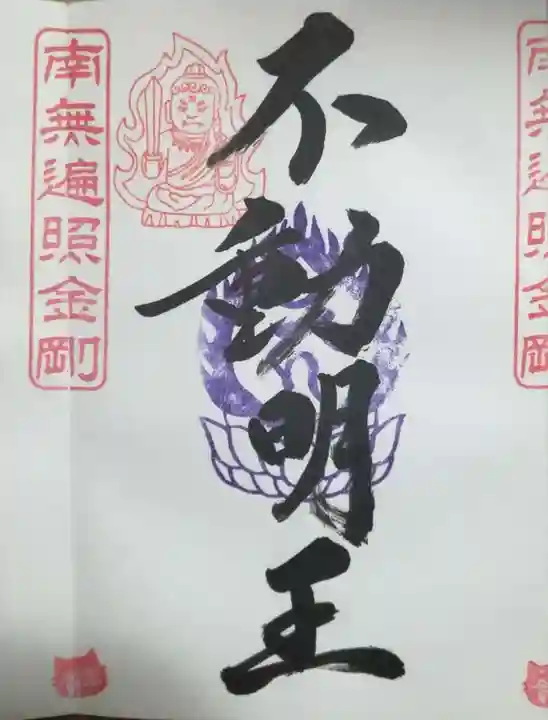 不動明王
南無遍照金剛
南無遍照金剛